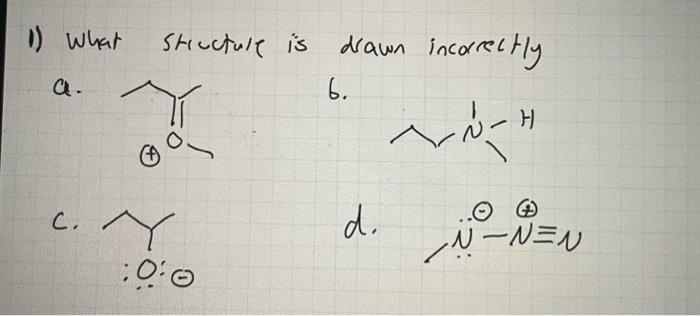 1) What structure is drawn incorrectly
a.
b.
N - H
O
⊕
c.
d.
:Ö:⊖
⊖ ⊕
N̤̈ - N ≡ N